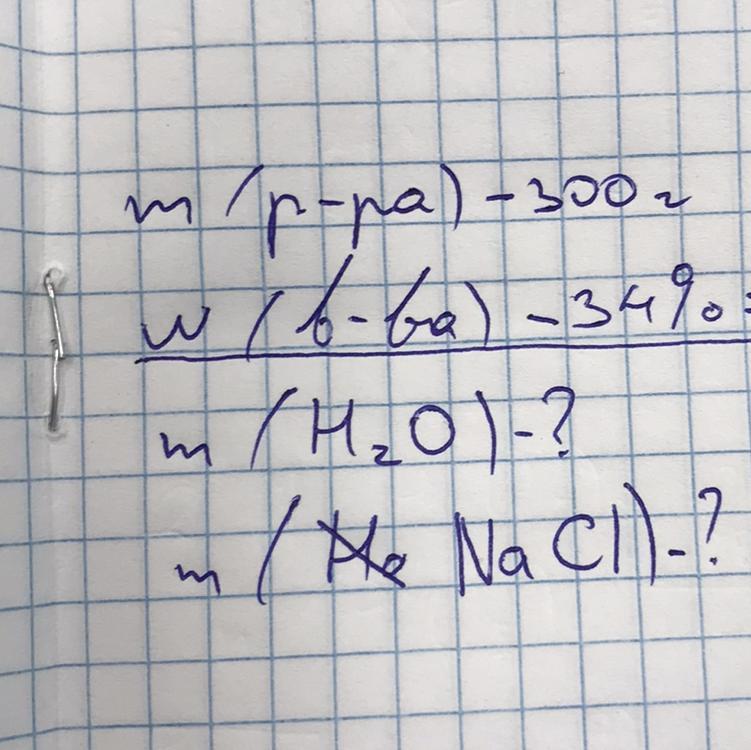 m (р-ра) - 300 г
w (в-ва) - 34%=
m (H₂O) - ?
m (NaCl) - ?